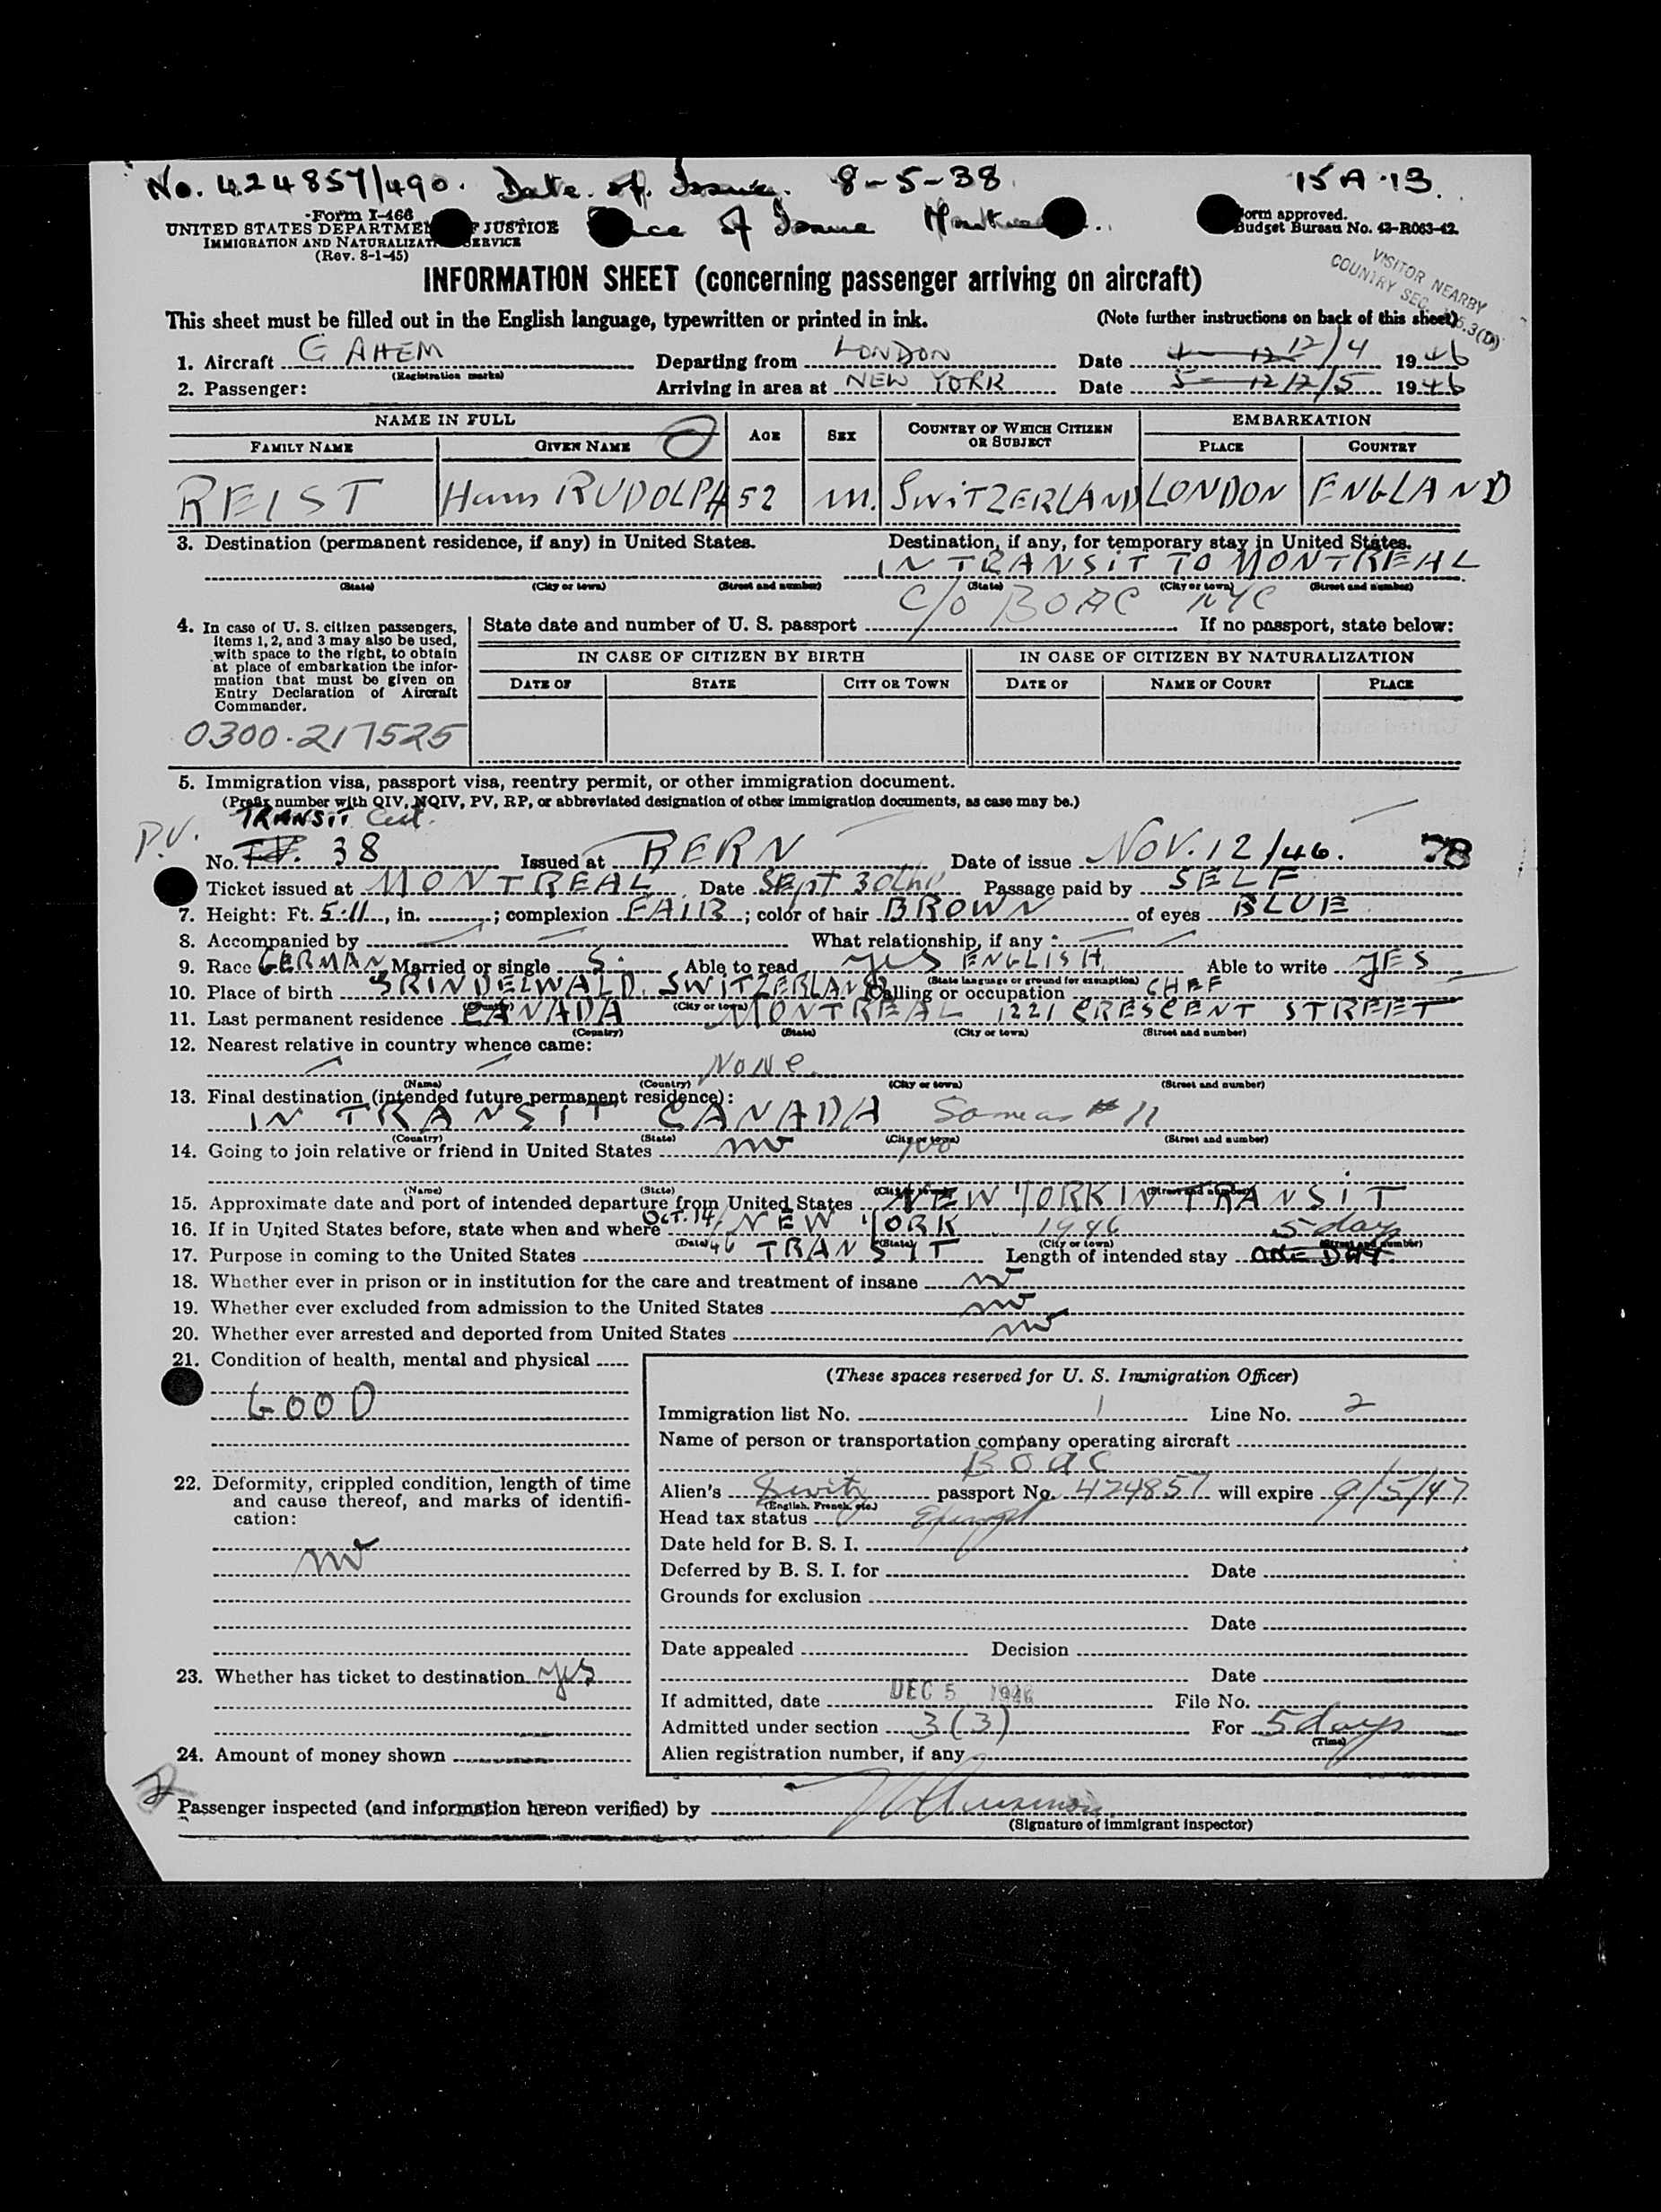 No. 424857/490. Date of Issue. 8-5-38 15A.13.
Form I-466
UNITED STATES DEPARTME JUSTICE
IMMIGRATION AND NATURALIZAT SERVICE
(Rev. 8-1-45)
ce of Issue
orm approved.
Budget Bureau No. 43-R063-42
VISITOR NEARBY
COUNTRY SEC
INFORMATION SHEET (concerning passenger arriving on aircraft)
This sheet must be filled out in the English language, typewritten or printed in ink. (Note further instructions on back of this sheet)
1. Aircraft G AHEM Departing from LONDON Date 12/4 1946
(Registration marks)
2. Passenger: Arriving in area at NEW YORK Date 12/5 1946
NAME IN FULL EMBARKATION
FAMILY NAME GIVEN NAME AGE SEX COUNTRY OF WHICH CITIZEN OR SUBJECT PLACE COUNTRY
REIST Hans RUDOLPH 52 M. SWITZERLAND LONDON ENGLAND
3. Destination (permanent residence, if any) in United States. Destination, if any, for temporary stay in United States.
IN TRANSIT TO MONTREAL
(State) (City or town) (Street and number) (State) (City or town) (Street and number)
C/O BOAC NYC
4. In case of U. S. citizen passengers, items 1, 2, and 3 may also be used, with space to the right, to obtain at place of embarkation the information that must be given on Entry Declaration of Aircraft Commander.
State date and number of U. S. passport If no passport, state below:
IN CASE OF CITIZEN BY BIRTH IN CASE OF CITIZEN BY NATURALIZATION
DATE OF STATE CITY OR TOWN DATE OF NAME OF COURT PLACE
0300-217525
5. Immigration visa, passport visa, reentry permit, or other immigration document.
(Prefix number with QIV, NQIV, PV, RP, or abbreviated designation of other immigration documents, as case may be.)
TRANSIT Cert.
P.V. No. T.V. 38 Issued at BERN Date of issue NOV. 12/46. 78
Ticket issued at MONTREAL Date SEPT 30th Passage paid by SELF
7. Height: Ft. 5.11, in. ; complexion FAIR; color of hair BROWN of eyes BLUE
8. Accompanied by What relationship, if any
9. Race GERMAN Married or single S. Able to read yes ENGLISH Able to write YES
(State language or ground for exemption)
10. Place of birth GRINDELWALD, SWITZERLAND Calling or occupation CHEF
(Country) (City or town)
11. Last permanent residence CANADA MONTREAL 1221 CRESCENT STREET
(Country) (State) (City or town) (Street and number)
12. Nearest relative in country whence came:
None
(Name) (Country) (City or town) (Street and number)
13. Final destination (intended future permanent residence):
IN TRANSIT CANADA Same as #11
(Country) (State) (City or town) (Street and number)
14. Going to join relative or friend in United States no No
(Name) (State) (City or town) (Street and number)
15. Approximate date and port of intended departure from United States NEW YORK IN TRANSIT
16. If in United States before, state when and where OCT. 14/46 NEW YORK 1946 5 days
(Date) (State) (City or town) (Street and number)
17. Purpose in coming to the United States TRANSIT Length of intended stay ONE DAY
18. Whether ever in prison or in institution for the care and treatment of insane no
19. Whether ever excluded from admission to the United States no
20. Whether ever arrested and deported from United States no
21. Condition of health, mental and physical
GOOD
22. Deformity, crippled condition, length of time and cause thereof, and marks of identification:
no
23. Whether has ticket to destination yes
24. Amount of money shown
(These spaces reserved for U. S. Immigration Officer)
Immigration list No. 1 Line No. 2
Name of person or transportation company operating aircraft
BOAC
Alien's Switz passport No. 424857 will expire 9/5/47
(English, French, etc.)
Head tax status Exempt
Date held for B. S. I.
Deferred by B. S. I. for Date
Grounds for exclusion
Date
Date appealed Decision
Date
If admitted, date DEC 5 1946 File No.
Admitted under section 3(3) For 5 days
(Time)
Alien registration number, if any
2
Passenger inspected (and information hereon verified) by
(Signature of immigrant inspector)